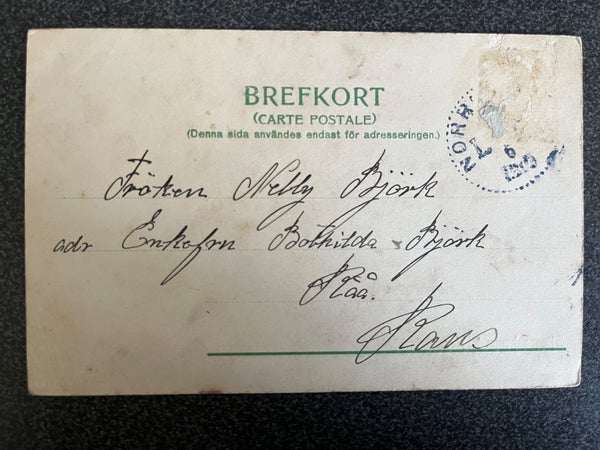 BREFKORT
(CARTE POSTALE)
(Denna sida användes endast för adresseringen.)
NORR
6
Fröken Nelly Björk
adr Enkefru Bothilda Björk
Råå.